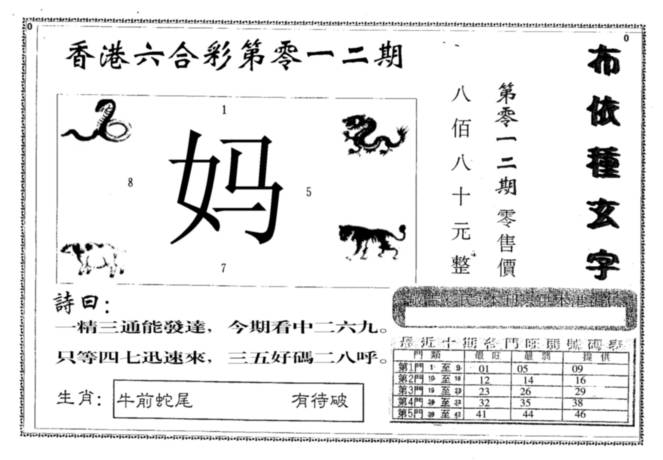 香港六合彩第零一二期
布依種玄字
第零一二期零售價
八佰八十元整
1
8
妈
5
7
詩曰:
一精三通能發達,今期看中二六九。
只等四七迅速來,三五好碼二八呼。
生肖: 牛前蛇尾 有待破
最近十期各門旺開號碼
門類 提供
第1門 至 01 05 09
第2門 至 12 14 16
第3門 至 23 26 29
第4門 至 32 35 38
第5門 至 41 44 46